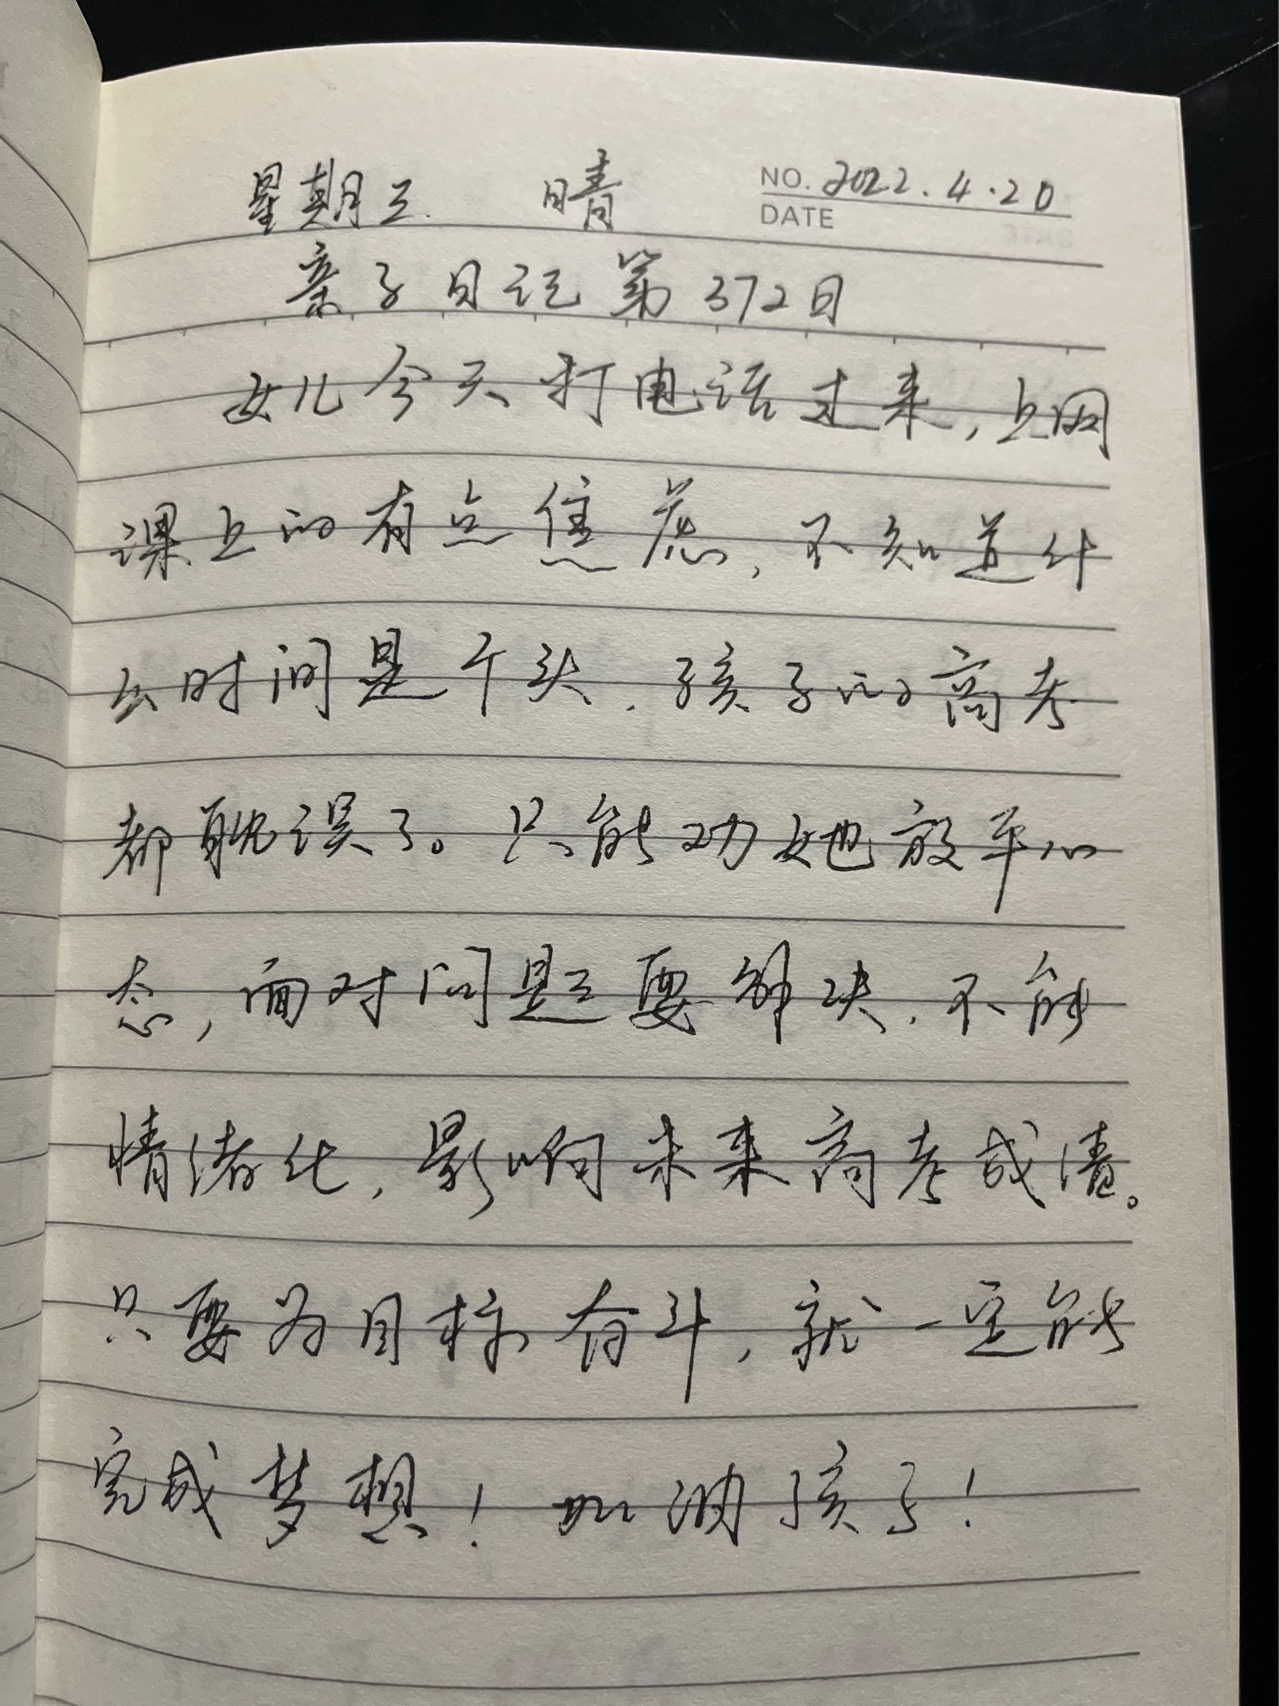 星期三 晴 NO. 2022.4.20
DATE
亲子日记第372日
女儿今天打电话过来,上网
课上的有点焦虑,不知道什
么时间是个头.孩子的高考
都耽误了。只能劝她放平心
态,面对问题要解决.不能
情绪化,影响未来高考成绩。
只要为目标奋斗,就一定能
完成梦想!加油孩子!